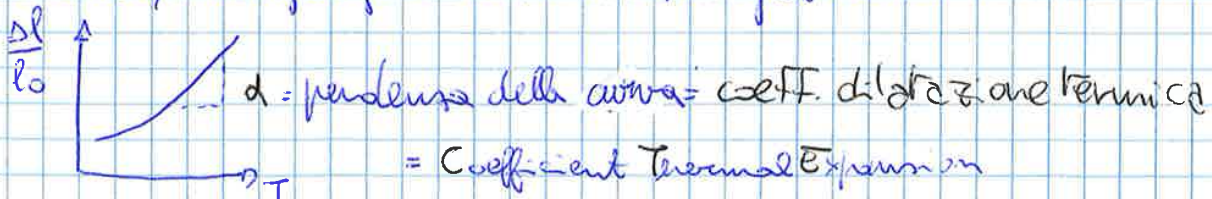 Δl
l0
α = pendenza della curva = coeff. dilatazione termica
= Coefficient Thermal Expansion
T